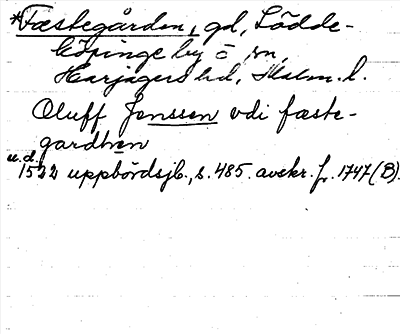 *Fæstegården, gd, Lödde-
köpinge by o sn,
Harjagers hd, Malm. l.
Oluff Jenssen vdi fæste-
gardhen
u.d.
1522 uppbördsjb., s. 485. avskr. fr. 1747 (B).